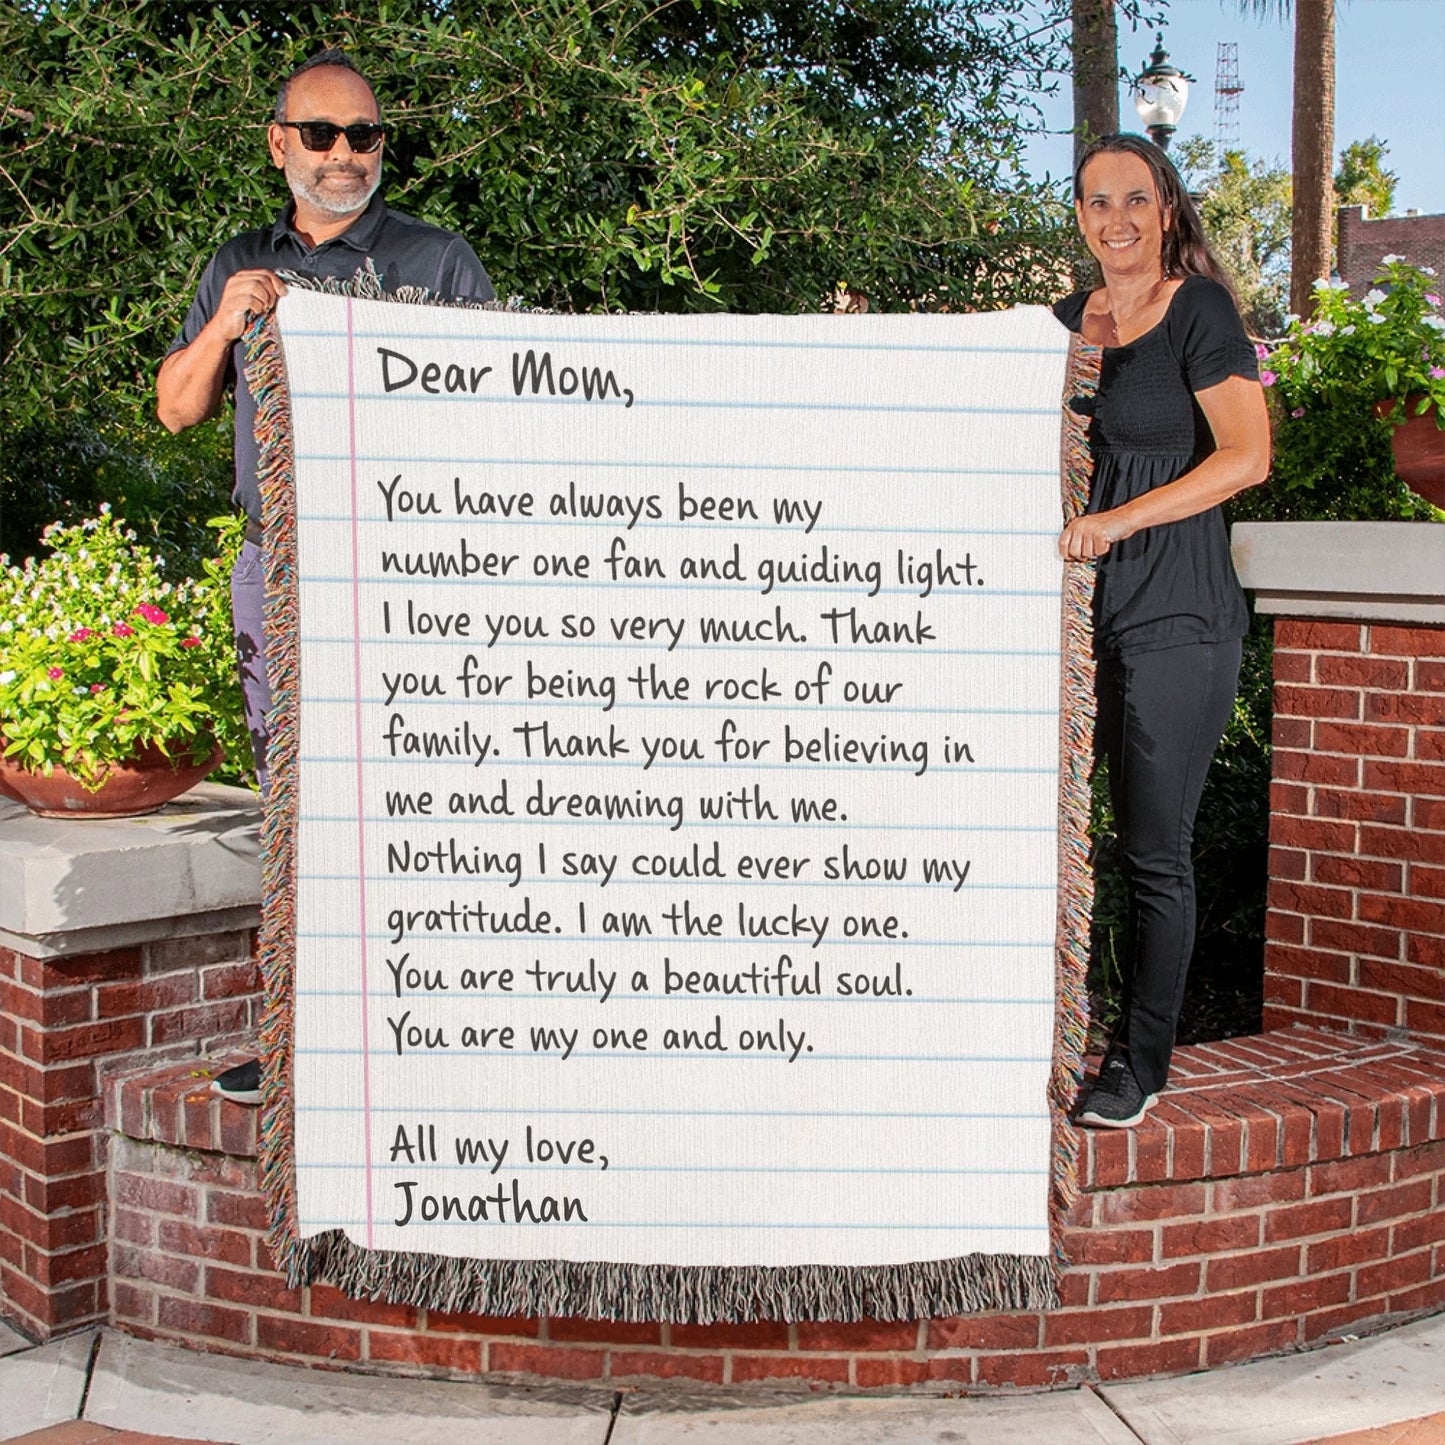 Dear Mom,
You have always been my
number one fan and guiding light.
I love you so very much. Thank
you for being the rock of our
family. Thank you for believing in
me and dreaming with me.
Nothing I say could ever show my
gratitude. I am the lucky one.
You are truly a beautiful soul.
You are my one and only.
All my love,
Jonathan